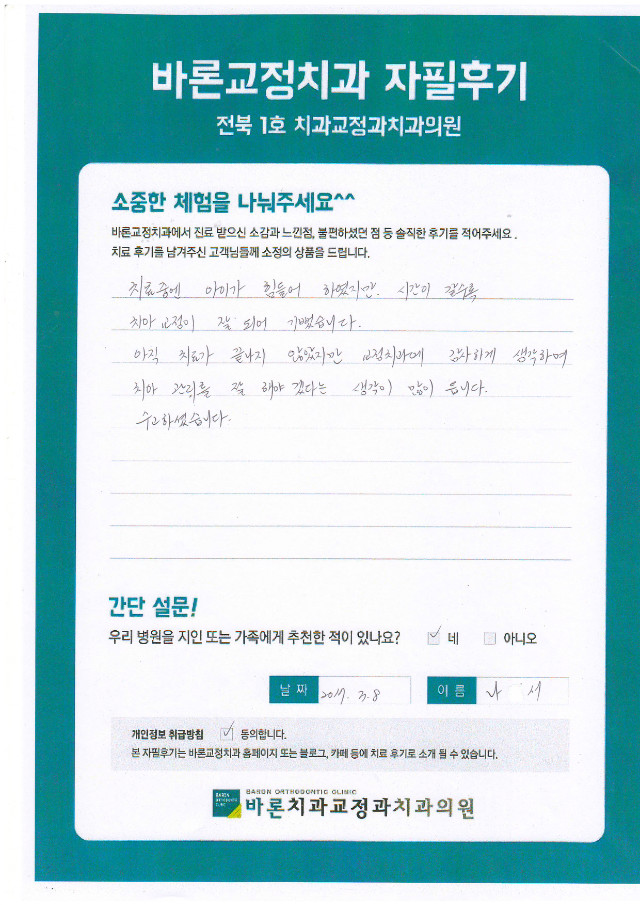 바론교정치과 자필후기
전북 1호 치과교정과치과의원
소중한 체험을 나눠주세요^^
바론교정치과에서 진료 받으신 소감과 느낀점, 불편하셨던 점 등 솔직한 후기를 적어주세요 .
치료 후기를 남겨주신 고객님들께 소정의 상품을 드립니다.
치료중에 아이가 힘들어 하였지만. 시간이 갈수록
치아 교정이 잘 되어 기뻤습니다.
아직 치료가 끝나지 않았지만 교정치과에 감사하게 생각하며
치아 관리를 잘 해야 겠다는 생각이 많이 듭니다.
수고하셨습니다.
간단 설문!
우리 병원을 지인 또는 가족에게 추천한 적이 있나요? 네 아니오
날 짜 2017. 3. 8 이 름 나 서
개인정보 취급방침 동의합니다.
본 자필후기는 바론교정치과 홈페이지 또는 블로그, 카페 등에 치료 후기로 소개 될 수 있습니다.
BARON ORTHODONTIC CLINIC
바론치과교정과치과의원